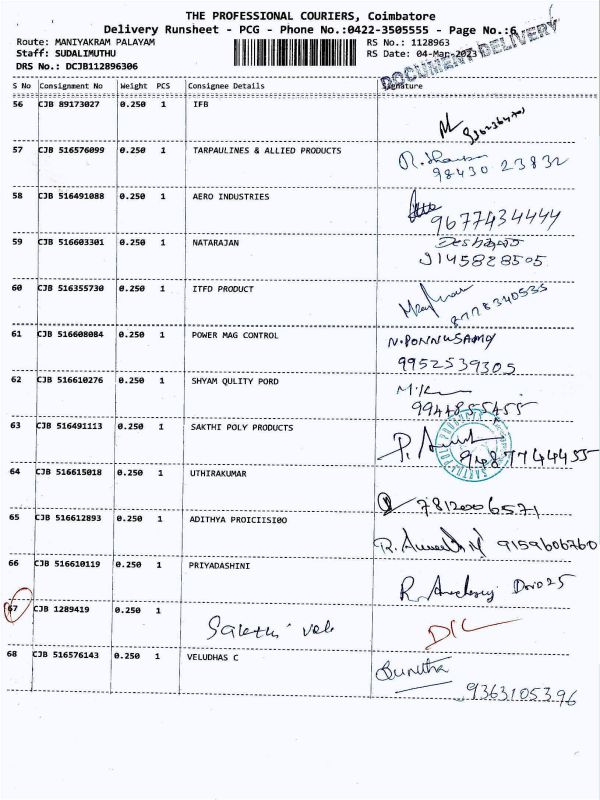 THE PROFESSIONAL COURIERS, Coimbatore
Delivery Runsheet - PCG - Phone No.:0422-3505555 - Page No.:6
Route: MANIYAKRAM PALAYAM RS No.: 1128963
Staff: SUDALIMUTHU RS Date: 04-Mar-2023
DRS No.: DCJB112896306
DOCUMENT DELIVERY
S No Consignment No Weight PCS Consignee Details Signature
56 CJB 89173027 0.250 1 IFB
57 CJB 516576099 0.250 1 TARPAULINES & ALLIED PRODUCTS
98430 23832
58 CJB 516491088 0.250 1 AERO INDUSTRIES
9677434444
59 CJB 516603301 0.250 1 NATARAJAN
9145828505
60 CJB 516355730 0.250 1 ITFD PRODUCT
8778340535
61 CJB 516608084 0.250 1 POWER MAG CONTROL N.PONNUSAMY
9952539305
62 CJB 516610276 0.250 1 SHYAM QULITY PORD
9944855455
63 CJB 516491113 0.250 1 SAKTHI POLY PRODUCTS
9487744455
64 CJB 516615018 0.250 1 UTHIRAKUMAR
7812006571
65 CJB 516612893 0.250 1 ADITHYA PROICIISI0O
9159606760
66 CJB 516610119 0.250 1 PRIYADASHINI
67 CJB 1289419 0.250 1
Sakthi vel D/C
68 CJB 516576143 0.250 1 VELUDHAS C Sunitha
9363105396